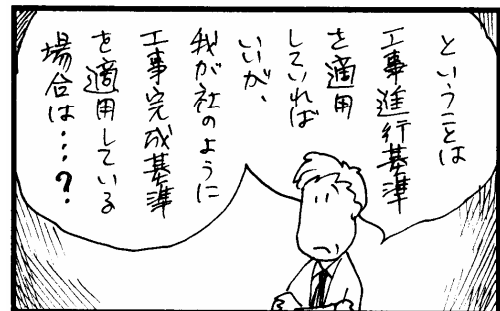 ということは
工事進行基準
を適用
していれば
いいが、
我が社のように
工事完成基準
を適用している
場合は…?